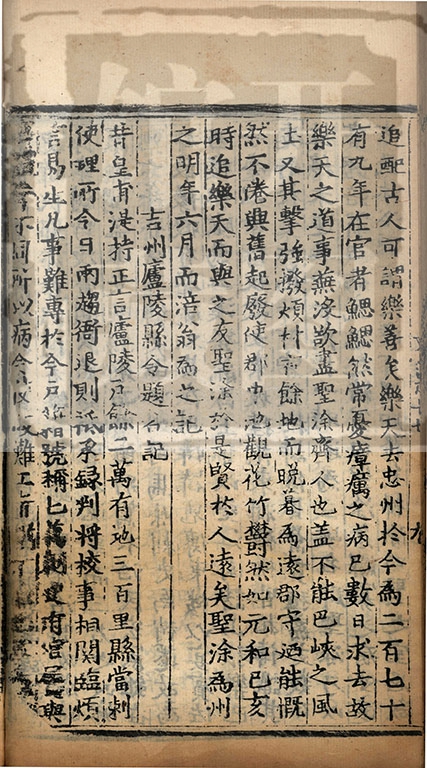 追配古人可謂樂善矣樂天去忠州於今為二百七十
有九年在官者鰓鰓然常憂瘴癘之病已數日求去故
樂天之道事蕪沒欲盡聖涂齊人也盖不能巴峽之風
土又其擊強撥煩材有餘地而晚暮為遠郡守迺能慨
然不倦興舊起廢使郡中池觀花竹欝然如元和已亥
時追樂天而與之友聖涂於是賢於人遠矣聖涂為州
之明年六月而涪翁為之記
吉州廬陵縣令題名記
昔皇甫湜持正言廬陵戶餘二萬有地三百里縣當刺
使理所今日兩趨衙退則抵承録判將校事相關臨煩
言易生凡事難專於今戶籍號稱七萬
不同所以病今